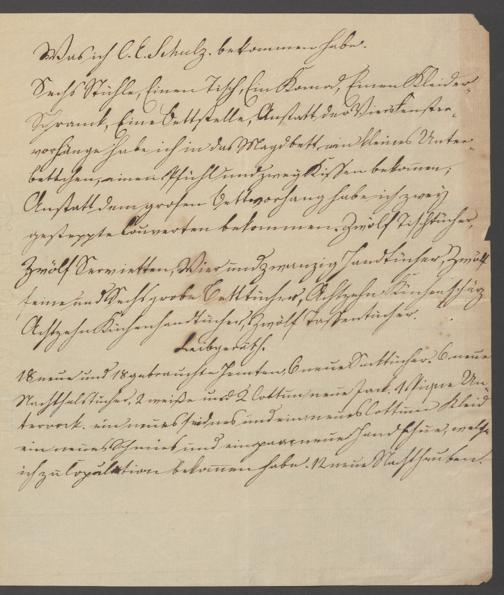 Was ich C. E. Schulz. bekommen habe.
Sechs Stühle, Einen Tisch, Ein Komod, Einen Kleider-
Schranck, Eine Bettstelle, Anstatt der Vier Fenster-
vorhänge habe ich in das Magdbett, ein kleines Unter-
bettchen, einen Pfühl und zwey Kissen bekommen,
Anstatt dem großen Bettvorhang habe ich zwey
gesteppte Couverten bekommen. Zwölf Tischtücher,
Zwölf Servietten, Vier und zwanzig Handtücher, Zwölf
feine und Sechs grobe Betttücher, Achtzehn Küchenschürz
Achtzehn Küchenhandtücher, Zwölf Taschentücher.
Leibgeräth.
18 neue und 18 gebrauchte Hemten, 6 neue Halstücher. 6 neue
Nachthalstücher, 2 weiße und 2 Cottun neue Jack. 1 Pigue Un-
terrock. ein neues seidnes und ein neues Cottun Kleid
ein neues und ein paar neue welche
ich zu Copulation bekommen habe. 12 neue Nachthauben.